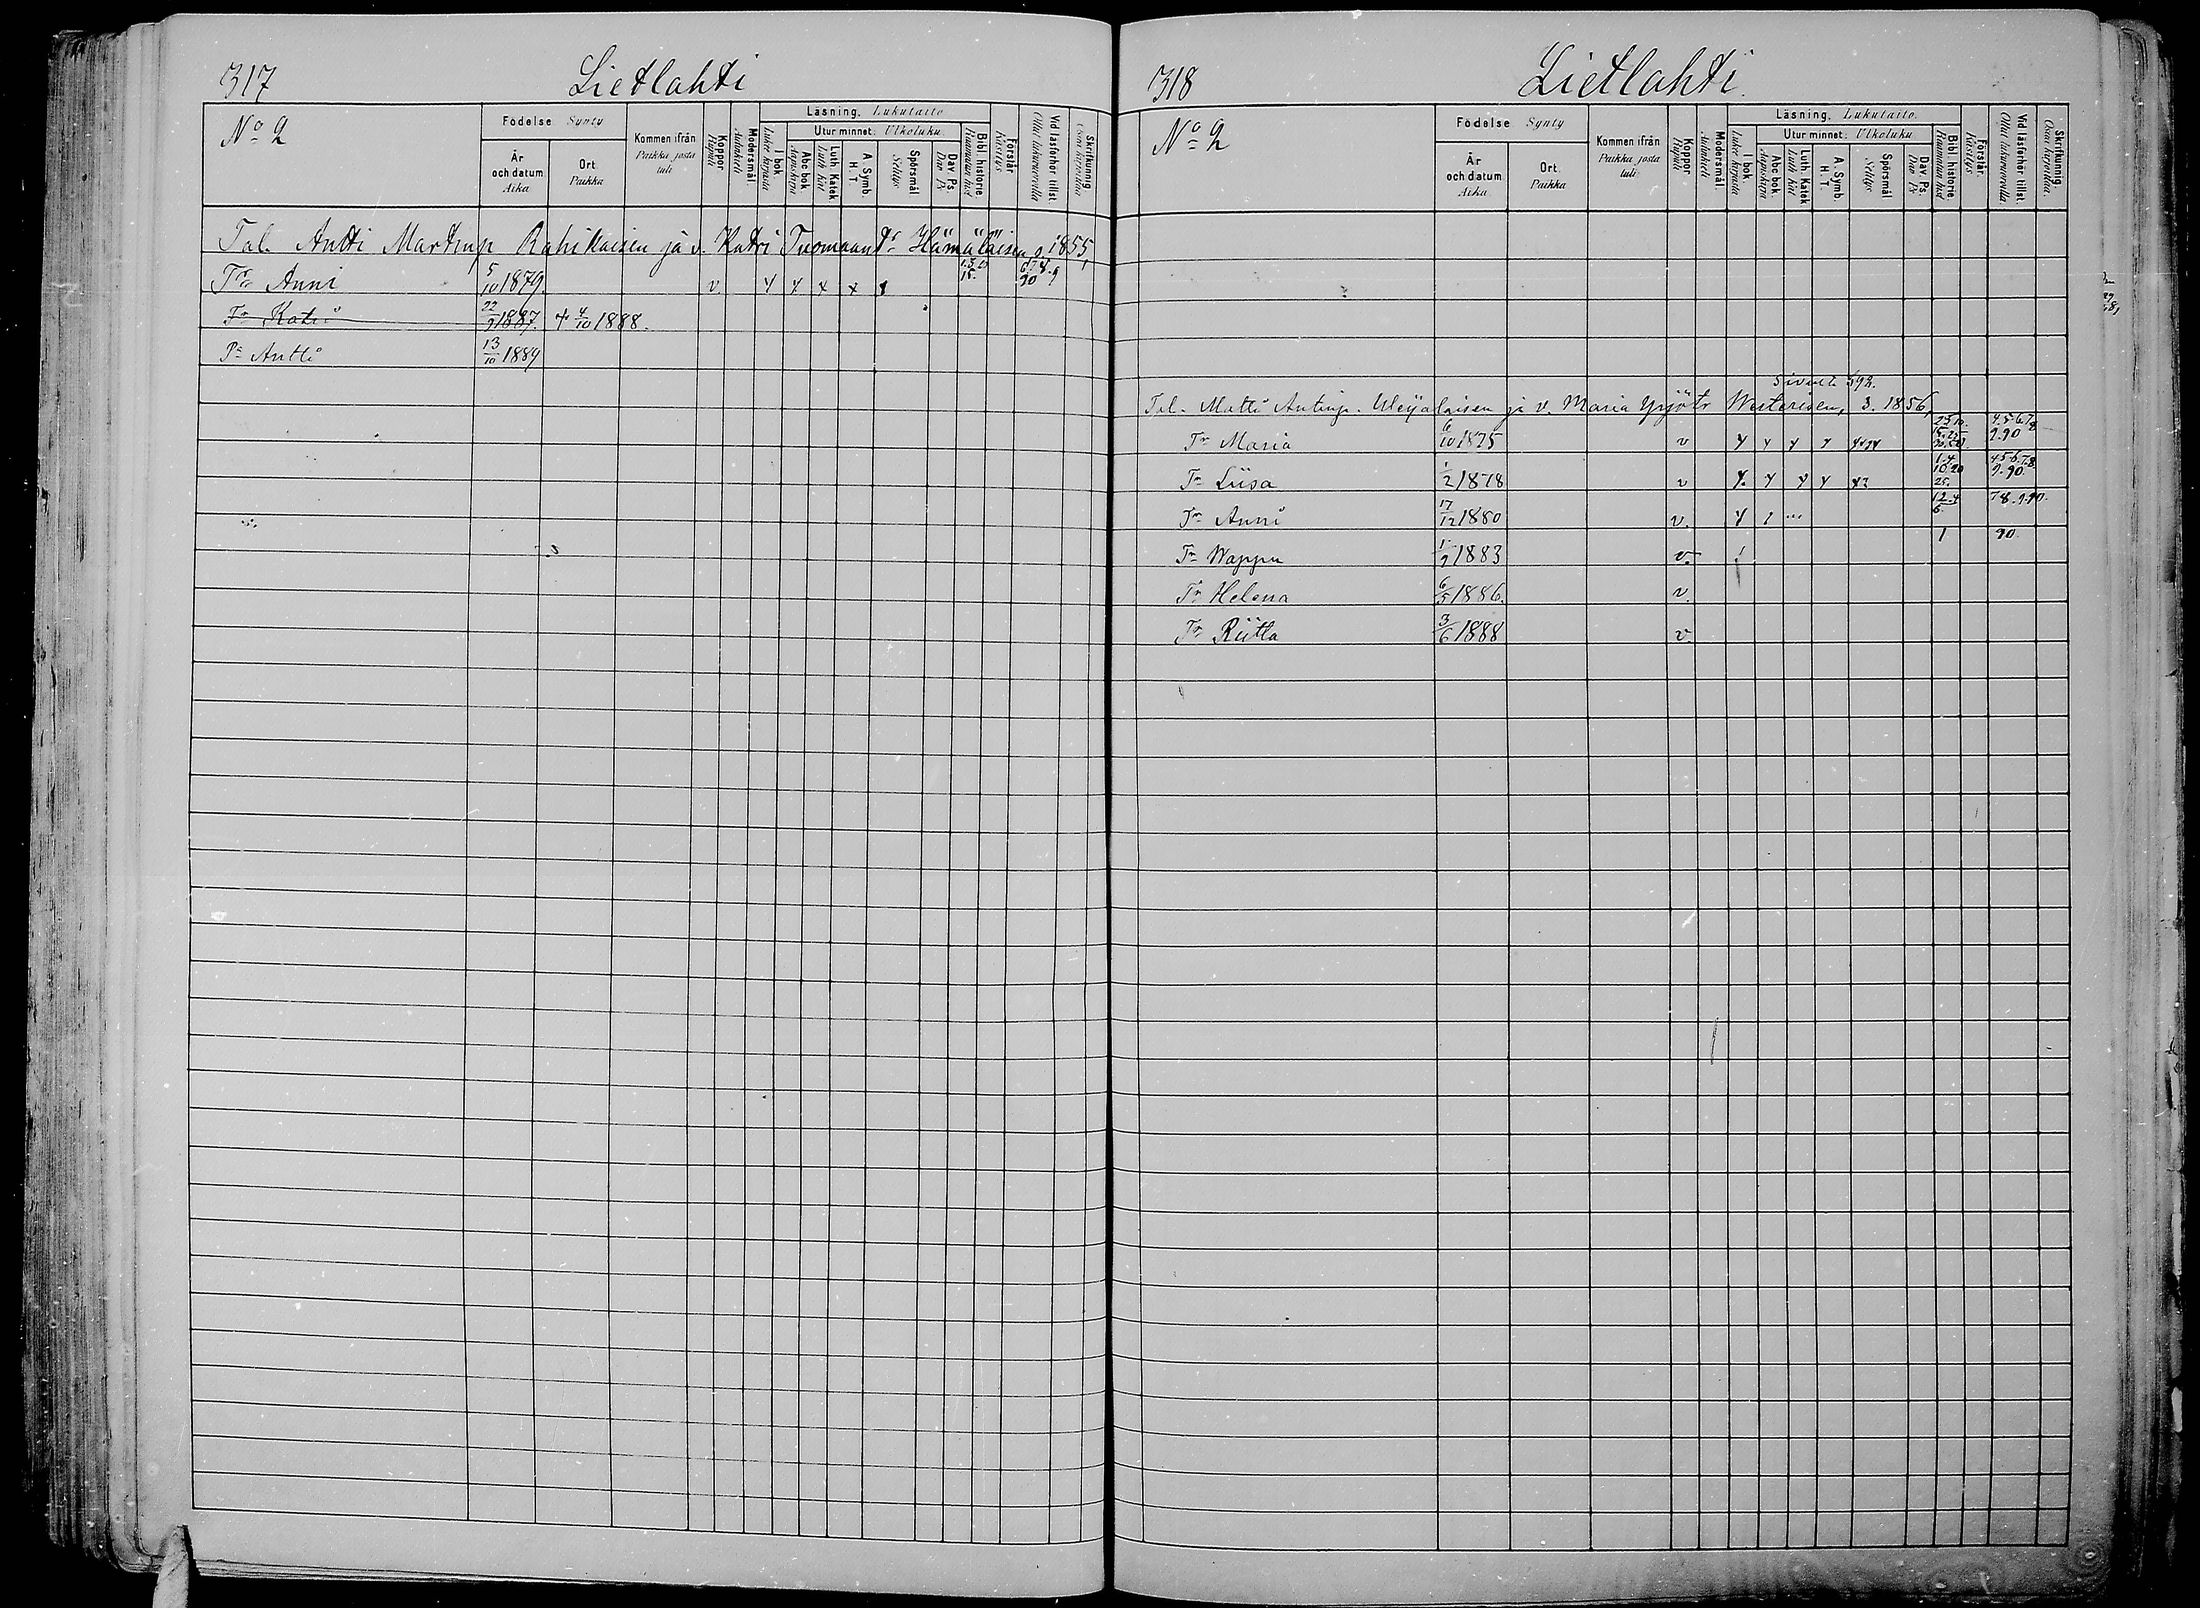 317 Lietlahti
No 2
Födelse Synty
År och datum Aika
Ort Paikka
Kommen ifrån Paikka josta tuli
Koppor Rupuli
Modersmål Äidinkieli
Läsning. Lukutaito
I bok Lukee kirjasta
Utur minnet. Ulkoluku.
Abc bok Aapiskirja
Luth. Katek. Luth kat
A Symb. H. T.
Spörsmål Selitys
Dav. Ps. Dav Ps
Bibl. historie. Raamatun hist
Förstår Käsitys
Vid läsförhör tillst. Ollut lukuvuorolla
Skrifkunnig Osaa kirjoittaa
Tal. Antti Martinp. Rahikaisen ja v. Katri Tuomaant:r Hämäläisen, s. 1855,
T:r Anni 5/10 1879. v. 15. 90
T:r Katri 22/9 1887. † 4/10 1888.
P:a Antti 13/10 1889
318 Lietlahti.
No 2
Födelse Synty
År och datum Aika
Ort Paikka
Kommen ifrån Paikka josta tuli
Koppor Rupuli
Modersmål Äidinkieli
Läsning. Lukutaito.
I bok Lukee kirjasta
Utur minnet. Ulkoluku
Abc bok Aapiskirja
Luth. Katek Luth kat
A Symb. H. T.
Spörsmål Selitys
Dav. Ps. Dav Ps
Bibl. historie. Raamatun hist
Förstår. Käsitys
Vid läsförhör tillst. Ollut lukuvuorolla
Skrifkunnig. Osaa kirjoittaa.
Sivulta 592.
Tal. Matti Antinp. ja v. Maria Yrjöt:r Westerisen, s. 1856,
T:r Maria 6/10 1875 v 4.5.6.7.8 9.90
T:r Liisa 1/2 1878 v 1.4 10.20 25. 4.5.6.7.8 9.90.
T:r Anni 17/12 1880 v. 1 2.4 6 7.8.9.90.
T:r Wappu 1/9 1883 v. 1 90.
T:r Helena 6/5 1886. v.
T:r Riitta 3/6 1888 v.